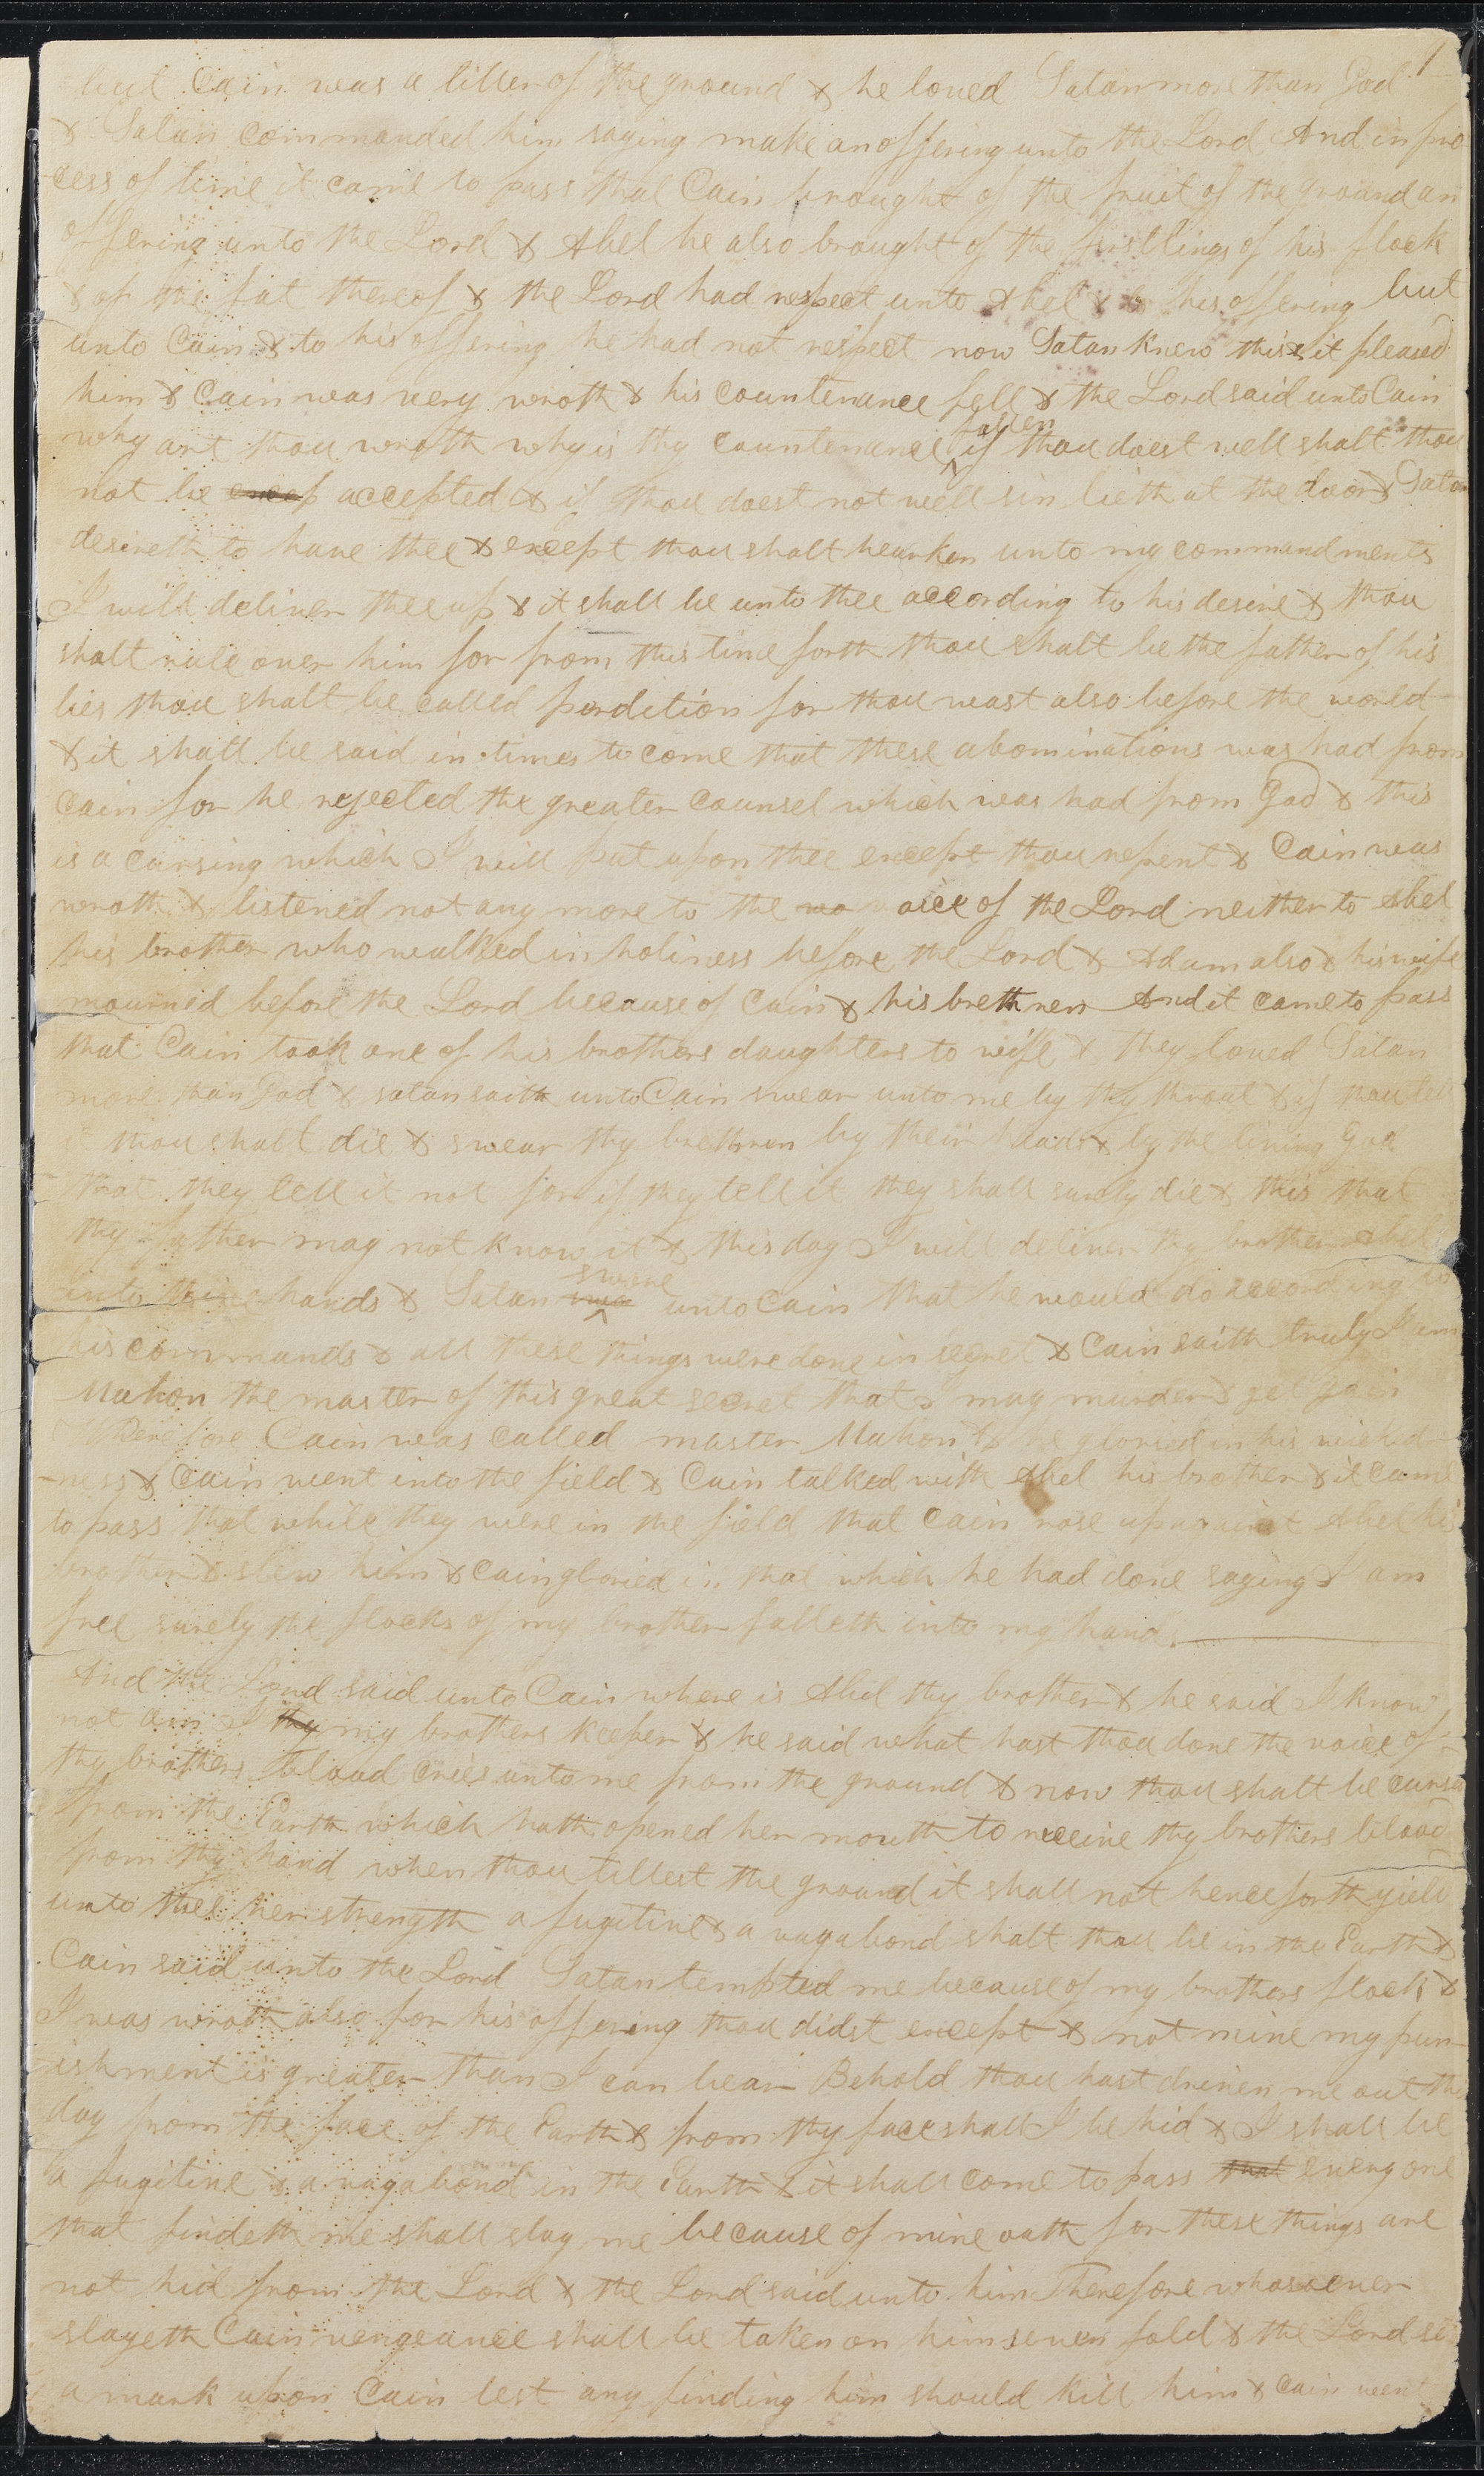 1
but Cain was a tiller of the ground & he loved Satan more than God
& Satan commanded him saying make an offering unto the Lord And in pro
cess of time it came to pass that Cain brought of the fruit of the ground an
offering unto the Lord & Abel he also brought of the firstlings of his flock
& of the fat thereof & the Lord had respect unto Abel & to his offering but
unto Cain & to his offering he had not respect now Satan knew this & it pleased
him & Cain was very wroth & his countenance fell & the Lord said unto Cain
why art thou wroth why is thy countenance fallen if thou doest well shalt thou
not be excep accepted & if thou doest not well sin lieth at the door & Satan
desireth to have thee & except thou shalt hearken unto my commandments
I will deliver thee up & it shall be unto thee according to his desire & thou
shalt rule over him for from this time forth thou shalt be the father of his
lies thou shalt be called perdition for thou wast also before the world
& it shall be said in times to come that these abominations was had from
Cain for he rejected the greater counsel which was had from God & this
is a cursing which I will put upon thee except thou repent & Cain was
wroth & listened not any more to the vo voice of the Lord neither to Abel
his brother who walked in holiness before the Lord & Adam also & his wife
mourned before the Lord because of Cain & his brethren And it came to pass
that Cain took one of his brothers daughters to wife & they loved Satan
more than God & satan saith unto Cain swear unto me by thy throat & if thou tell
it thou shalt die & swear thy brethren by their heads & by the living God
that they tell it not for if they tell it they shall surely die & this that
thy father may not know it & this day I will deliver thy brother Abel
into thine hands & Satan swa swore unto Cain that he would do according to
his commands & all these things were done in secret & Cain saith truly I am
Mahon the master of this great secret that I may murder & get gain
Wherefore Cain was called master Mahon & he gloried in his wicked
-ness & Cain went into the field & Cain talked with Abel his brother & it came
to pass that while they were in the field that Cain rose up against Abel his
brother & slew him & Cain gloried in that which he had done saying I am
free surely the flocks of my brother falleth into my hands
And the Lord said unto Cain where is Abel thy brother & he said I know
not am I thy my brothers keeper & he said what hast thou done the voice of
thy brothers blood cries unto me from the ground & now thou shalt be cursed
from the Earth which hath opened her mouth to receive thy brothers blood
from thy hand when thou tillest the ground it shall not henceforth yield
unto thee her strength a fugitive & a vagabond shalt thou be in the Earth &
Cain said unto the Lord Satan tempted me because of my brothers flocks &
I was wroth also for his offering thou didst except & not mine my pun
ishment is greater than I can bear Behold thou hast driven me out this
day from the face of the Earth & from thy face shall I be hid & I shall be
a fugitive & a vagabond in the Earth & it shall come to pass that every one
that findeth me shall slay me because of mine oath for these things are
not hid from the Lord & the Lord said unto him Therefore whosoever
slayeth Cain vengeance shall be taken on him seven fold & the Lord set
a mark upon Cain lest any finding him should kill him & Cain went